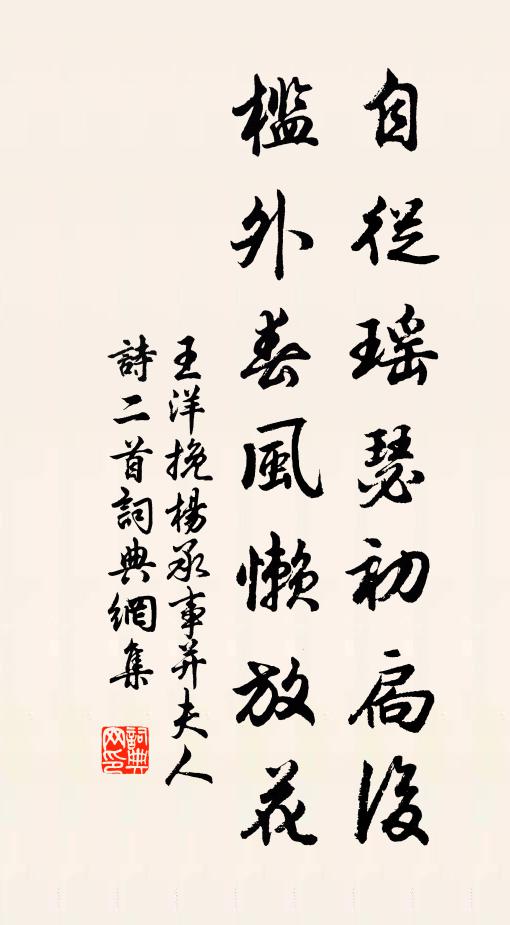 自從瑶瑟初扃後
檻外春風懶放花
王洋挽楊承事并夫人
詩二首詞典網集
詞典網印